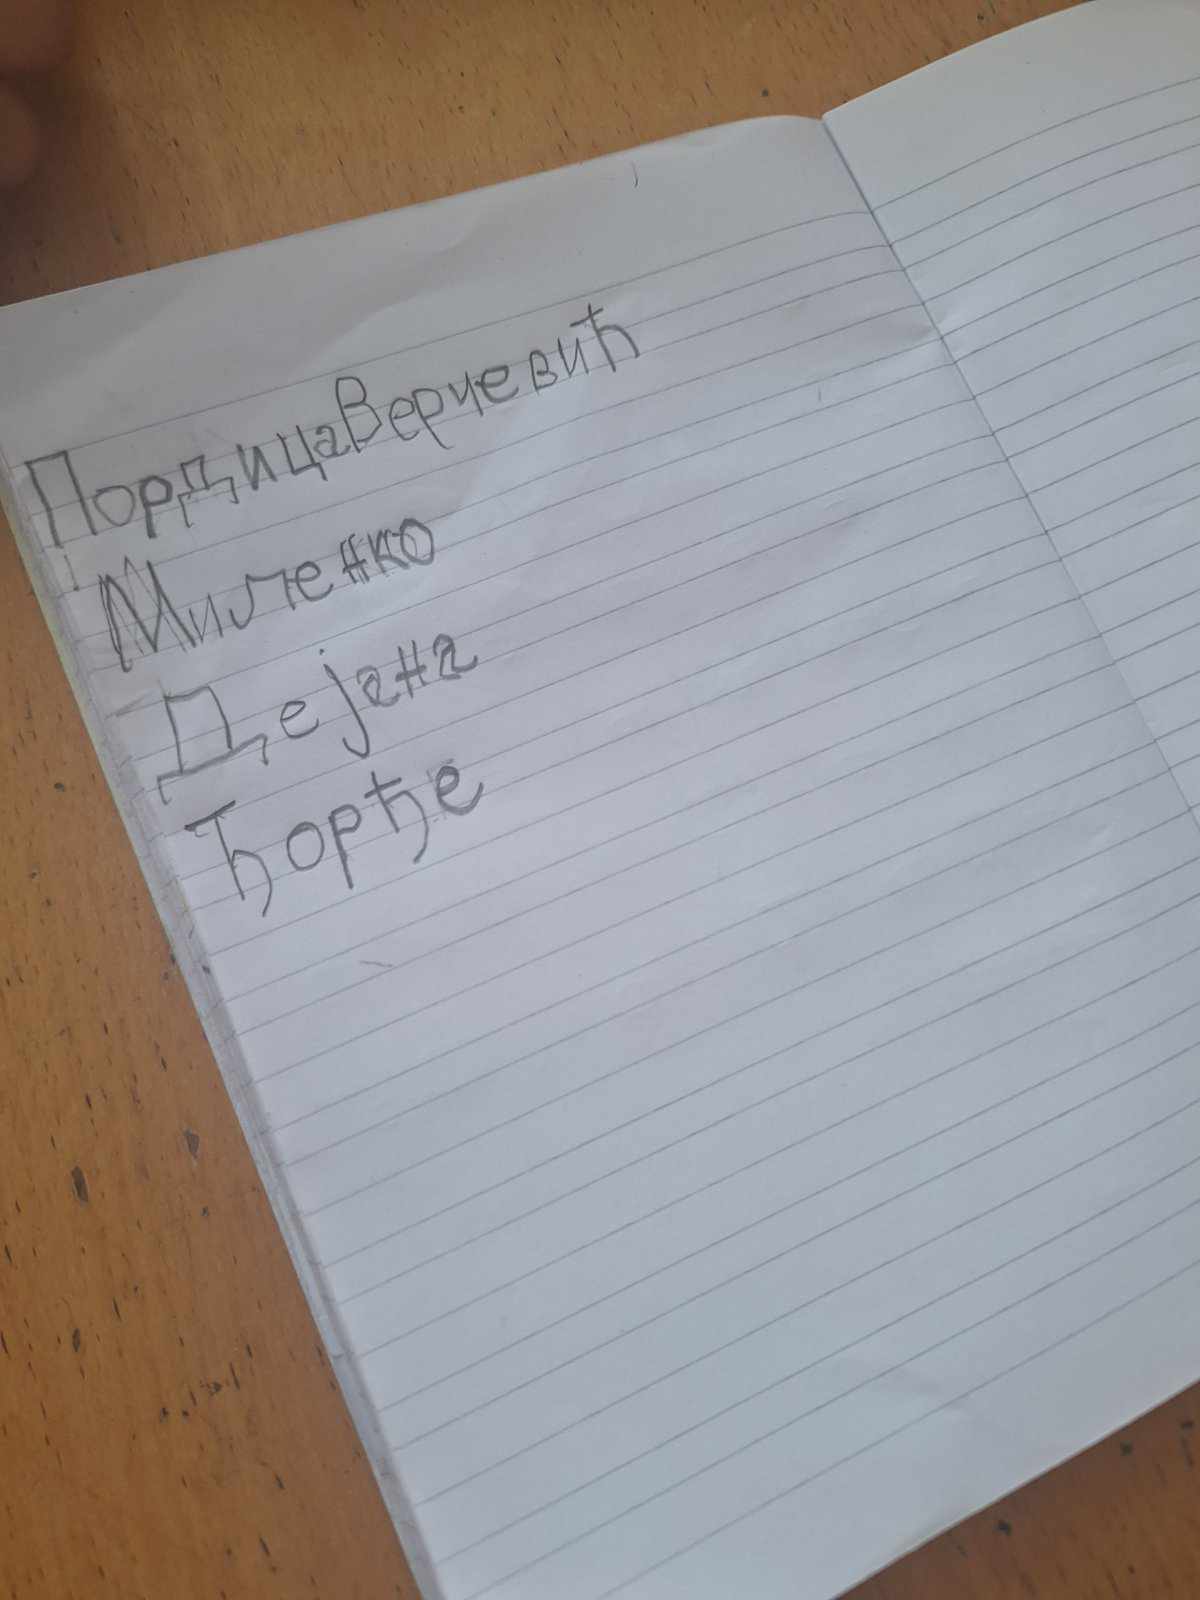 Пордица Верчевић
Миленко
Дејана
Ђорђе